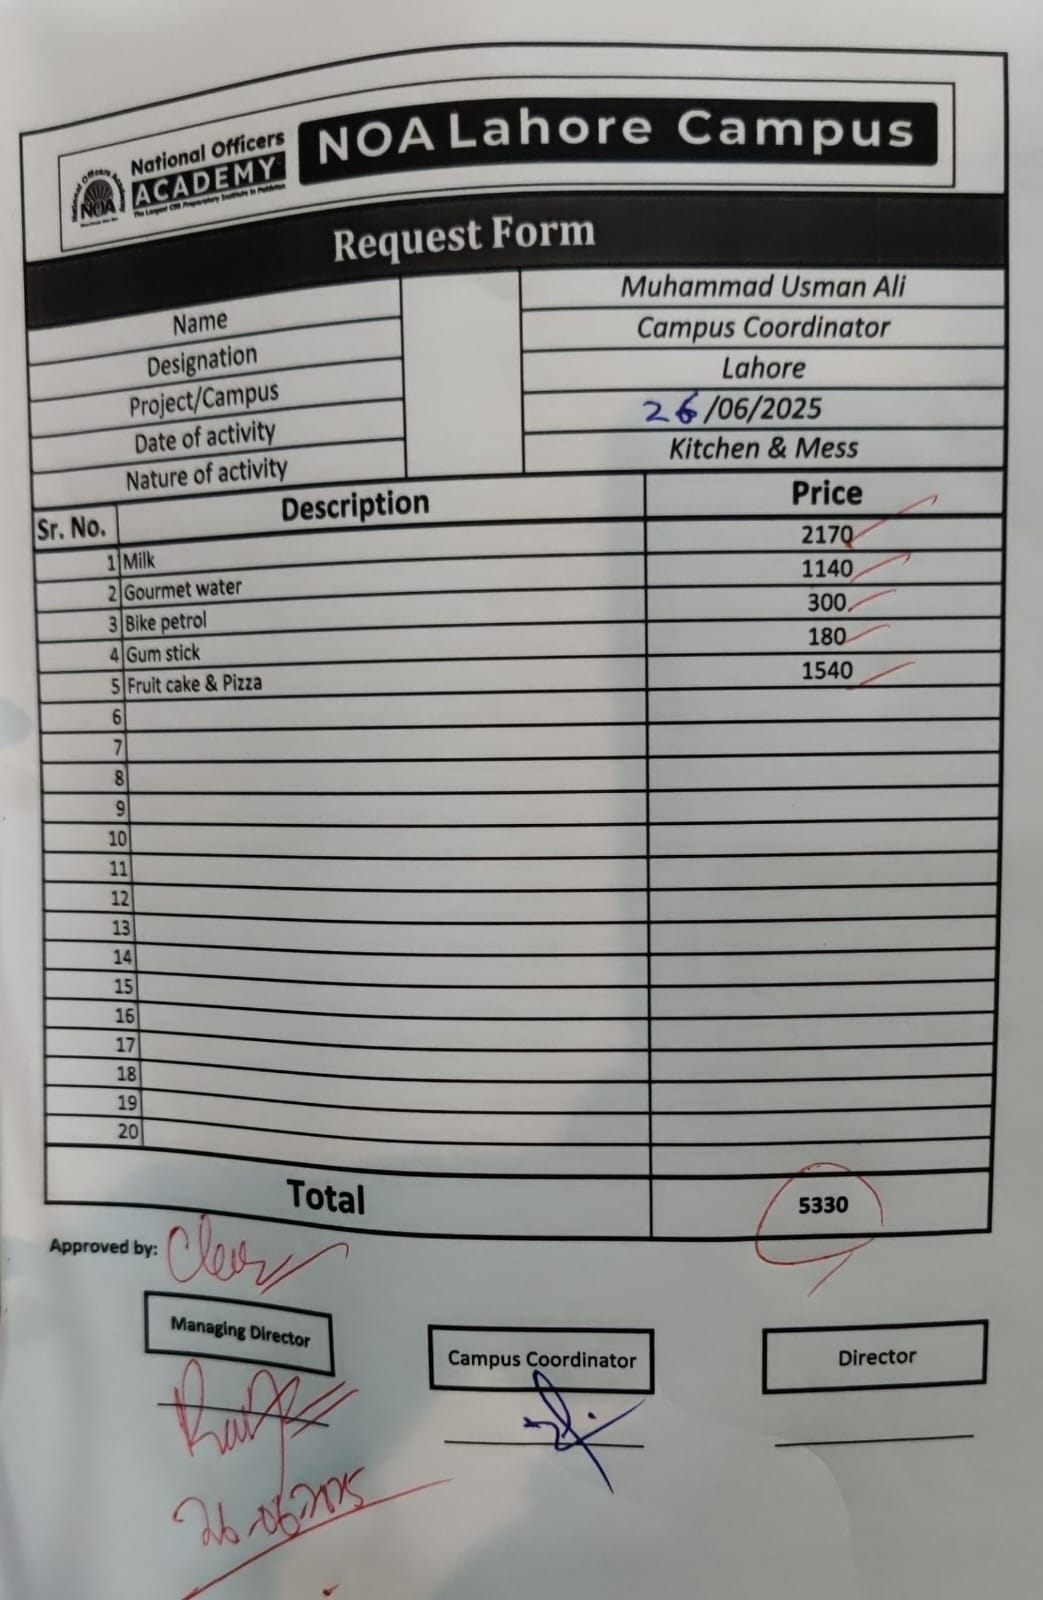 National Officers
ACADEMY
The Largest CSS Preparatory Institute in Pakistan
National Officers Academy
NOA
NOA Lahore Campus
Request Form
Name Muhammad Usman Ali
Designation Campus Coordinator
Project/Campus Lahore
Date of activity 26/06/2025
Nature of activity Kitchen & Mess
Sr. No. Description Price
1 Milk 2170
2 Gourmet water 1140
3 Bike petrol 300
4 Gum stick 180
5 Fruit cake & Pizza 1540
6
7
8
9
10
11
12
13
14
15
16
17
18
19
20
Total 5330
Approved by: Clear
Managing Director Campus Coordinator Director
26-06-2025